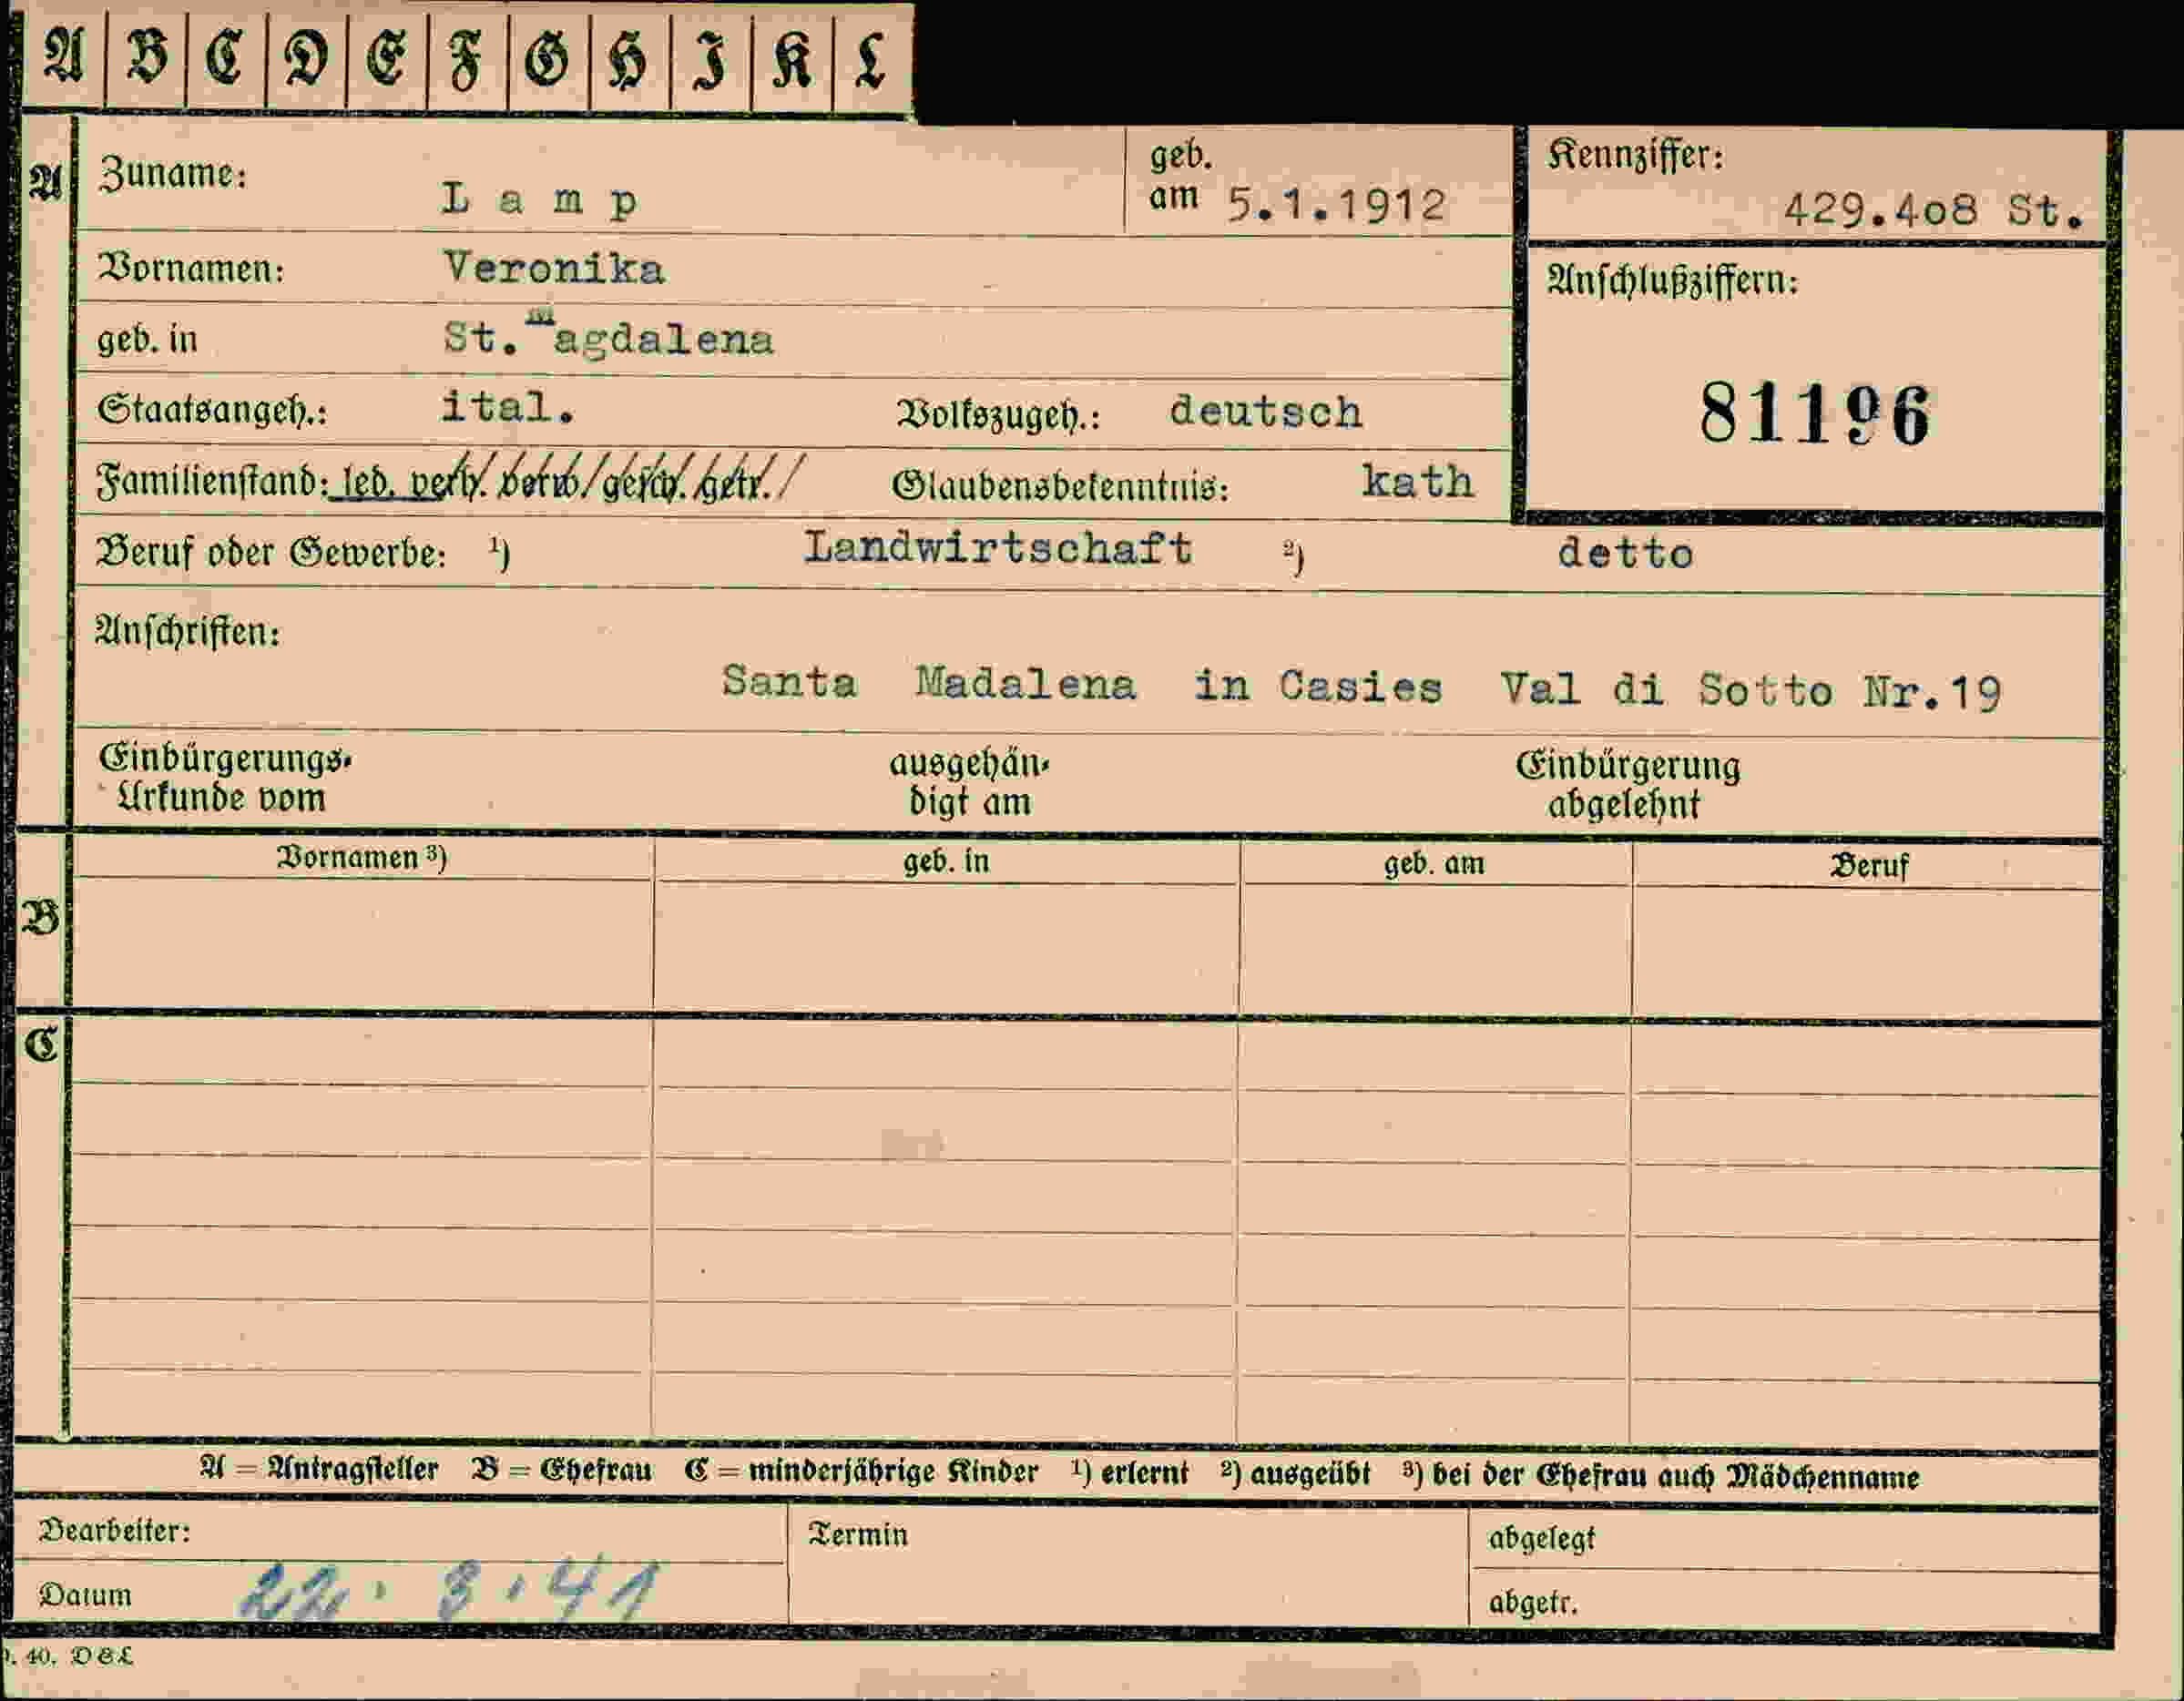 A B C D E F G H I K L
A Zuname: Lamp geb. am 5.1.1912 Kennziffer: 429.4o8 St.
Vornamen: Veronika Anschlußziffern:
geb. in St.Magdalena
Staatsangeh.: ital. Volkszugeh.: deutsch 81196
Familienstand: led. verh. verw. gesch. getr. Glaubensbekenntnis: kath
Beruf oder Gewerbe: ¹) Landwirtschaft ²) detto
Anschriften:
Santa Madalena in Casies Val di Sotto Nr.19
Einbürgerungs- ausgehän- Einbürgerung
Urkunde vom digt am abgelehnt
Vornamen ³) geb. in geb. am Beruf
B
C
A = Antragsteller B = Ehefrau C = minderjährige Kinder ¹) erlernt ²) ausgeübt ³) bei der Ehefrau auch Mädchenname
Bearbeiter: Termin abgelegt
Datum 22. 3. 41 abgetr.
40. D&L